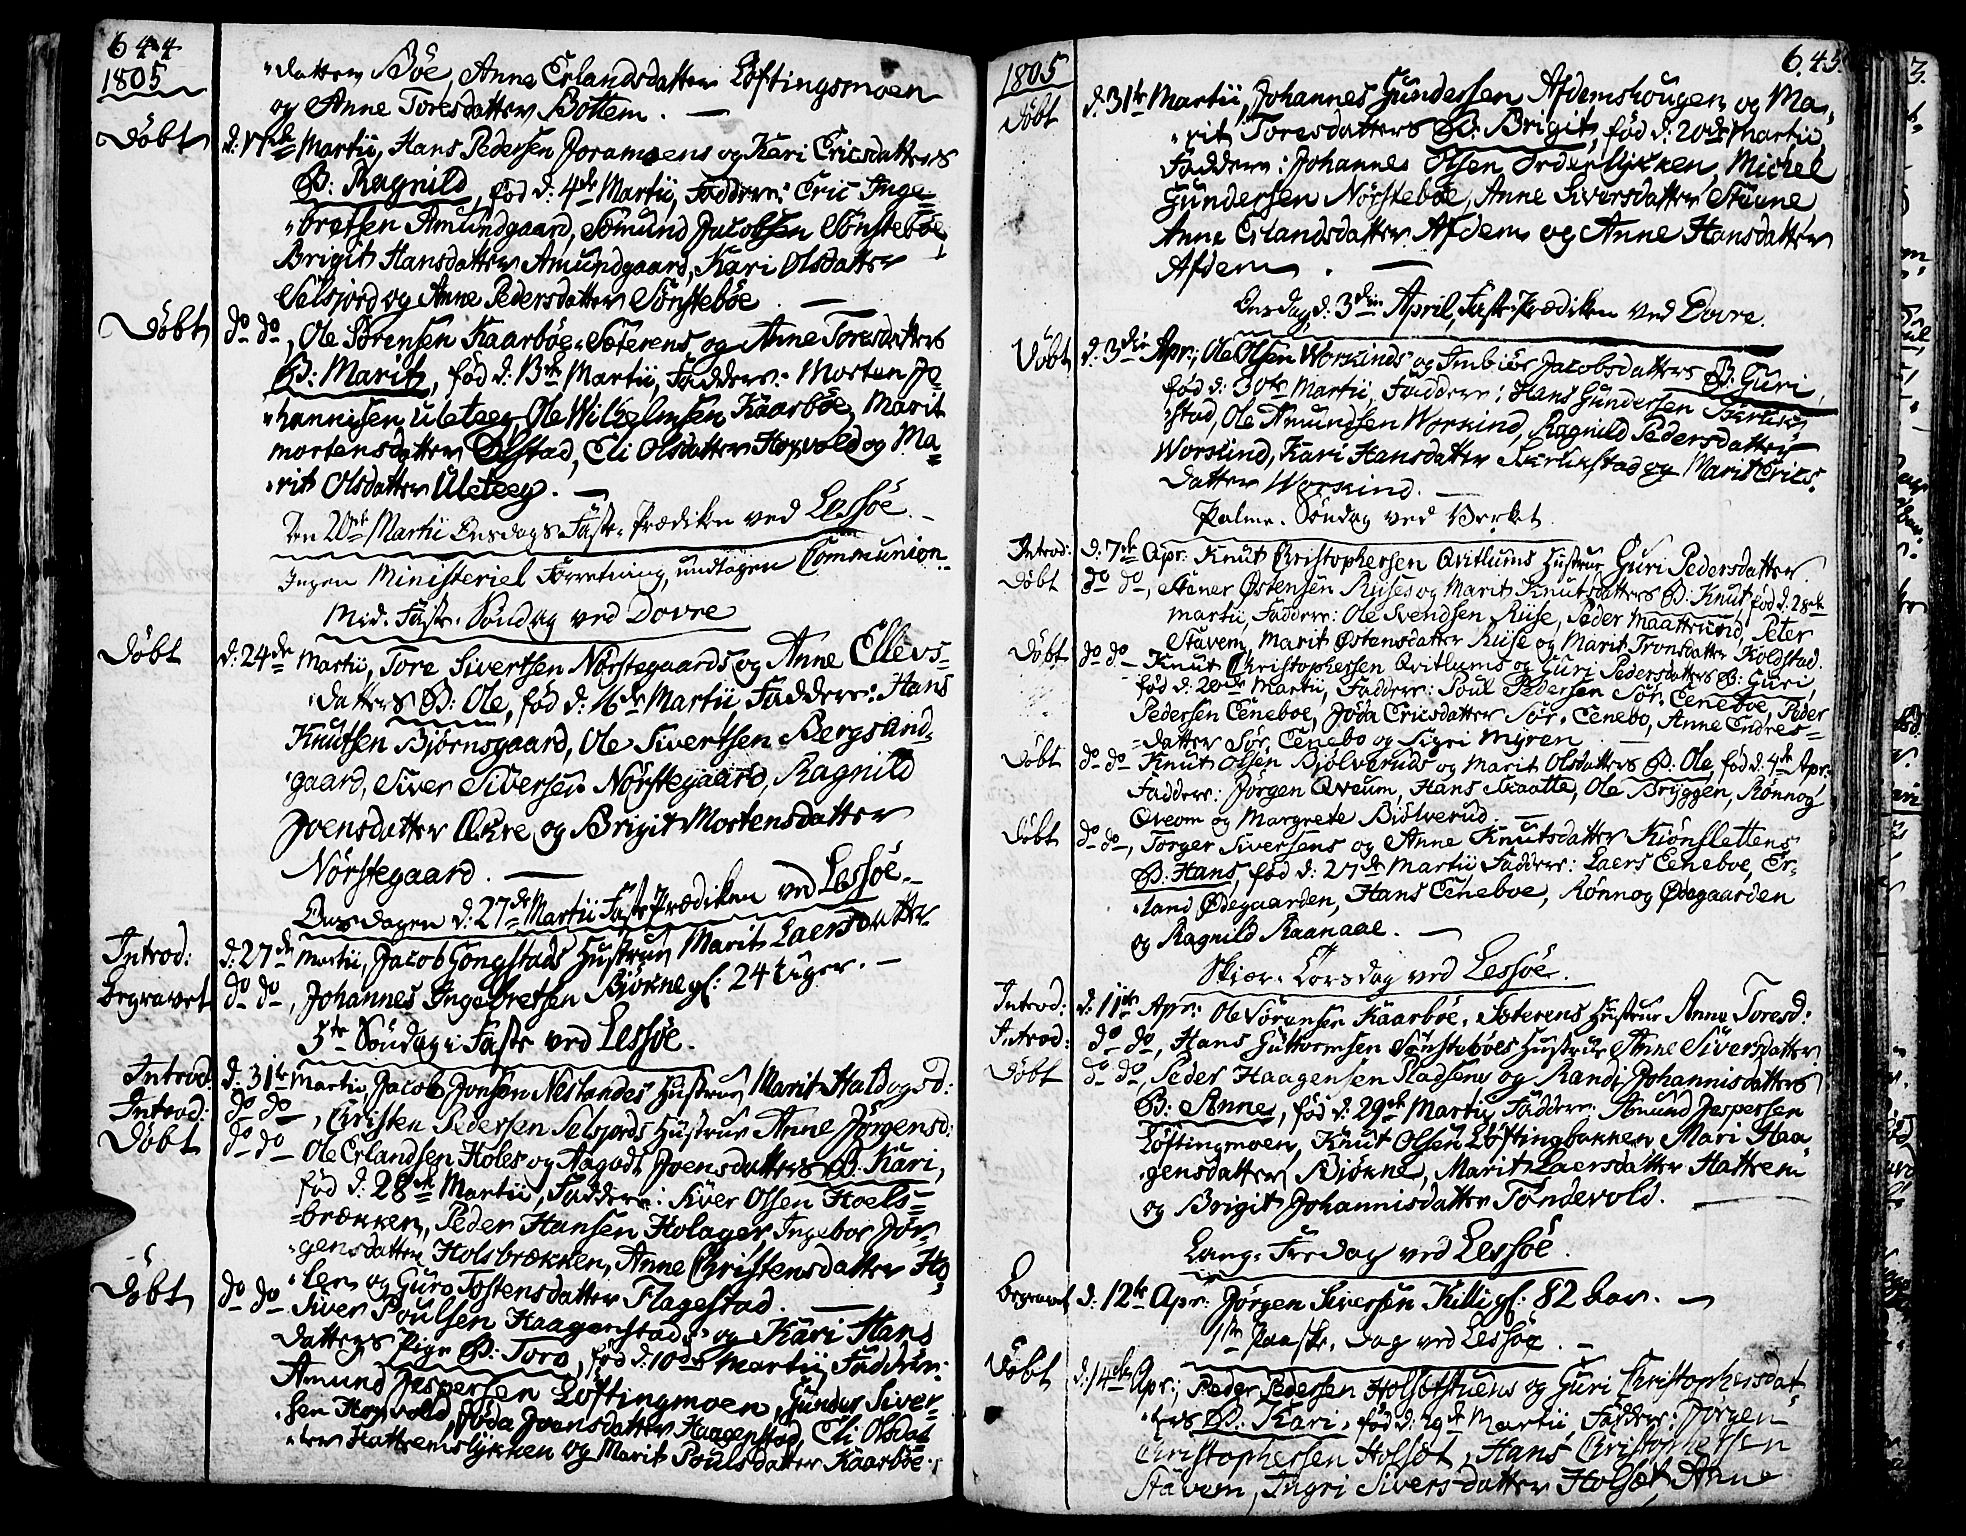 644
1805
"datter Böe, Anne Erlandsdatter Löftingsmoen
og Anne Toresdatter Bottem. —
Döbt d: 17de Martii, Hans Pedersen Joramoens og Kari Ericsdatters
B: Ragnild, föd d: 4de Martii, Faddere: Eric Inge=
"bretsen Amundgaard, Amund Jacobsen Sönsteböe
Brigit Hansdatter Amundgaard, Kari Olsdatter
Selsjord og Anne Pedersdatter Sönsteböe. —
Döbt do do, Ole Sörensen Kaarböe-Sæterens og Anne Toresdatters
B: Marit, föd d: 13de Martii, Faddere: Morten Jo=
"hannisen Uleteeg, Ole Wilhelmsen Kaarböe, Marit
Mortensdatter Ølstad, Eli Olsdatter Hogvold og Ma=
"rit Olsdatter Uleteeg. —
Den 20de Martii Onsdags Faste-Prædiken ved Lessöe. —
Ingen Ministeriel Forretning, undtagen Communion.
Mid-Faste-Söndag ved Dovre
Döbt d: 24de Martii, Tore Sivertsen Nörstegaards og Anne Ellevs=
"datters B: Ole, föd d: 16de Martii Faddere: Hans
Knutsen Bjørnsgaard, Ole Sivertsen Bergseng=
"gaard, Siver Siversen Nörstegaard, Ragnild
Joensdatter Økre og Brigit Mortensdatter
Nörstegaard. —
Onsdagen d: 27de Martii Faste-Prædiken ved Lessöe. —
Introd: d: 27de Martii, Jacob Gongstads Hustrue Marit Laersdatter
Begravet do do, Johannes Ingebretsen Bjökne gl: 24 Uger. —
5te Söndag i Faste ved Lessöe.
Introd: d: 31te Martii, Jacob Jonsen Neslandes Hustrue Marit Haldogsd:
Introd: do do, Cristen Pedersen Selsjords Hustrue Anne Jörgensd:
Döbt do do Ole Erlandsen Holes og Aagodt Joensdatters B: Kari,
föd d: 28de Martii, Faddere: Siver Olsen Hoels=
=brækken, Peder Hansen Holager Ingebor Jör=
"gensdatter Holsbrækken, Anne Christensdatter Ho=
"len og Guro Tostensdatter Flagestad. —
Döbt do do Siver Poulsen Haagenstads og Kari Hans
datters Pige B: Toro, föd d: 10de Martii, Faddere:
Amund Jespersen Löftingmoen, Gunder Siver=
"sen Hogvold, Jöda Joensdatter Haagenstad, Eli Olsdat
"ter Hattremslykken og Marit Poulsdatter Kaarböe.
1805
645.
Döbt d: 31te Martii, Johannes Gundersen Afdemshougen og Ma=
"rit Toresdatters B: Brigit, föd d: 20de Martii,
Faddere: Johannes Olsen Ørderlykken, Michel
Gundersen Nörsteböe, Anne Siversdatter Stuene
Anne Erlandsdatter Afdem og Anne Hansdatter
Afdem. —
Onsdag d: 3die April, Faste-Prædiken ved Dovre.
Döbt d: 3die Apr:, Ole Olsen Workinds og Imbiör Jacobsdatters B: Guri,
föd d: 30te Martii, Faddere: Hans Gundersen
"stad, Ole Amundsen Workind, Ragnild Pedersdatter
Workind, Kari Hansdatter og Marit Erics=
datter Workind. —
Palme-Söndag ved Verket.
Introd: d: 7de Apr: Knut Christophersen Qvitlums Hustrue Guri Pedersdatter.
Döbt do do, Stener Østensen Ruses og Marit Knutsdatters B: Knut, föd d: 28de
Martii, Faddere: Ole Svendsen Ruse, Peder Maattrund, Peter
Stavem, Marit Østensdatter Ruse og Marit Tronsdatter Koldstad.
Döbt do do — Knut Christophersen Qvitlums og Guri Pedersdatters B: Guri,
föd d: 20de Martii, Faddere: Poul Pedersen Sör-Eneboe, Peder
Pedersen Eneboe, Jöda Ericsdatter Sör-Enebo, Anne Endres=
=datter Sör-Enebo og Sigri Myren
Döbt do do — Knut Olsen Bjölveruds og Marit Olsdatters B: Ole, föd d: 4de Apr:
Faddere: Jörgen Qveum, Hans Skaatte, Ole Bryggen, Rönnog
Qveom og Margrete Bjölverud. —
Döbt do do —, Torger Siversens og Anne Knutsdatter Kiönslettens
B: Hans, föd d: 27de Martii Faddere: Laers Eneboe, Er=
"land Ødegaarden, Hans Eneboe, Rönnog Ødegaarden
og Ragnild Raanaae. —
Skier-Torsdag ved Lessöe.
Introd: d: 11te Apr: Ole Sörensen Kaarböe-Sæterens Hustrue Anne Toresd:
Introd: do do, Hans Guttormsen Sönsteböes Hustrue Anne Siversdatter
Döbt do do, Peder Haagensen Pladsens og Randi Johannisdatters
B: Anne, föd d: 29de Martii, Faddere: Amund Jespersen
Löftingmoen, Knut Olsen Löftingbakken Mari Haa=
"gensdatter Bjökne, Marit Laersdatter Hattrem
og Brigit Johannisdatter Töndevold. —
Lang-Fredag ved Lessöe.
Begravet d: 12te Apr: Jörgen Siversen Killi gl: 82 Aar. —
1ste Paaske-Dag ved Lessöe. —
Döbt d: 14de Apr: Peder Pedersen Holsetstuens og Guri Christophersdat=
"ters B: Kari, föd d: 29de Martii, Faddere: Jörgen
Christophersen Holset, Hans Christophersen
Stavem, Ingri Siversdatter Holset, Anne